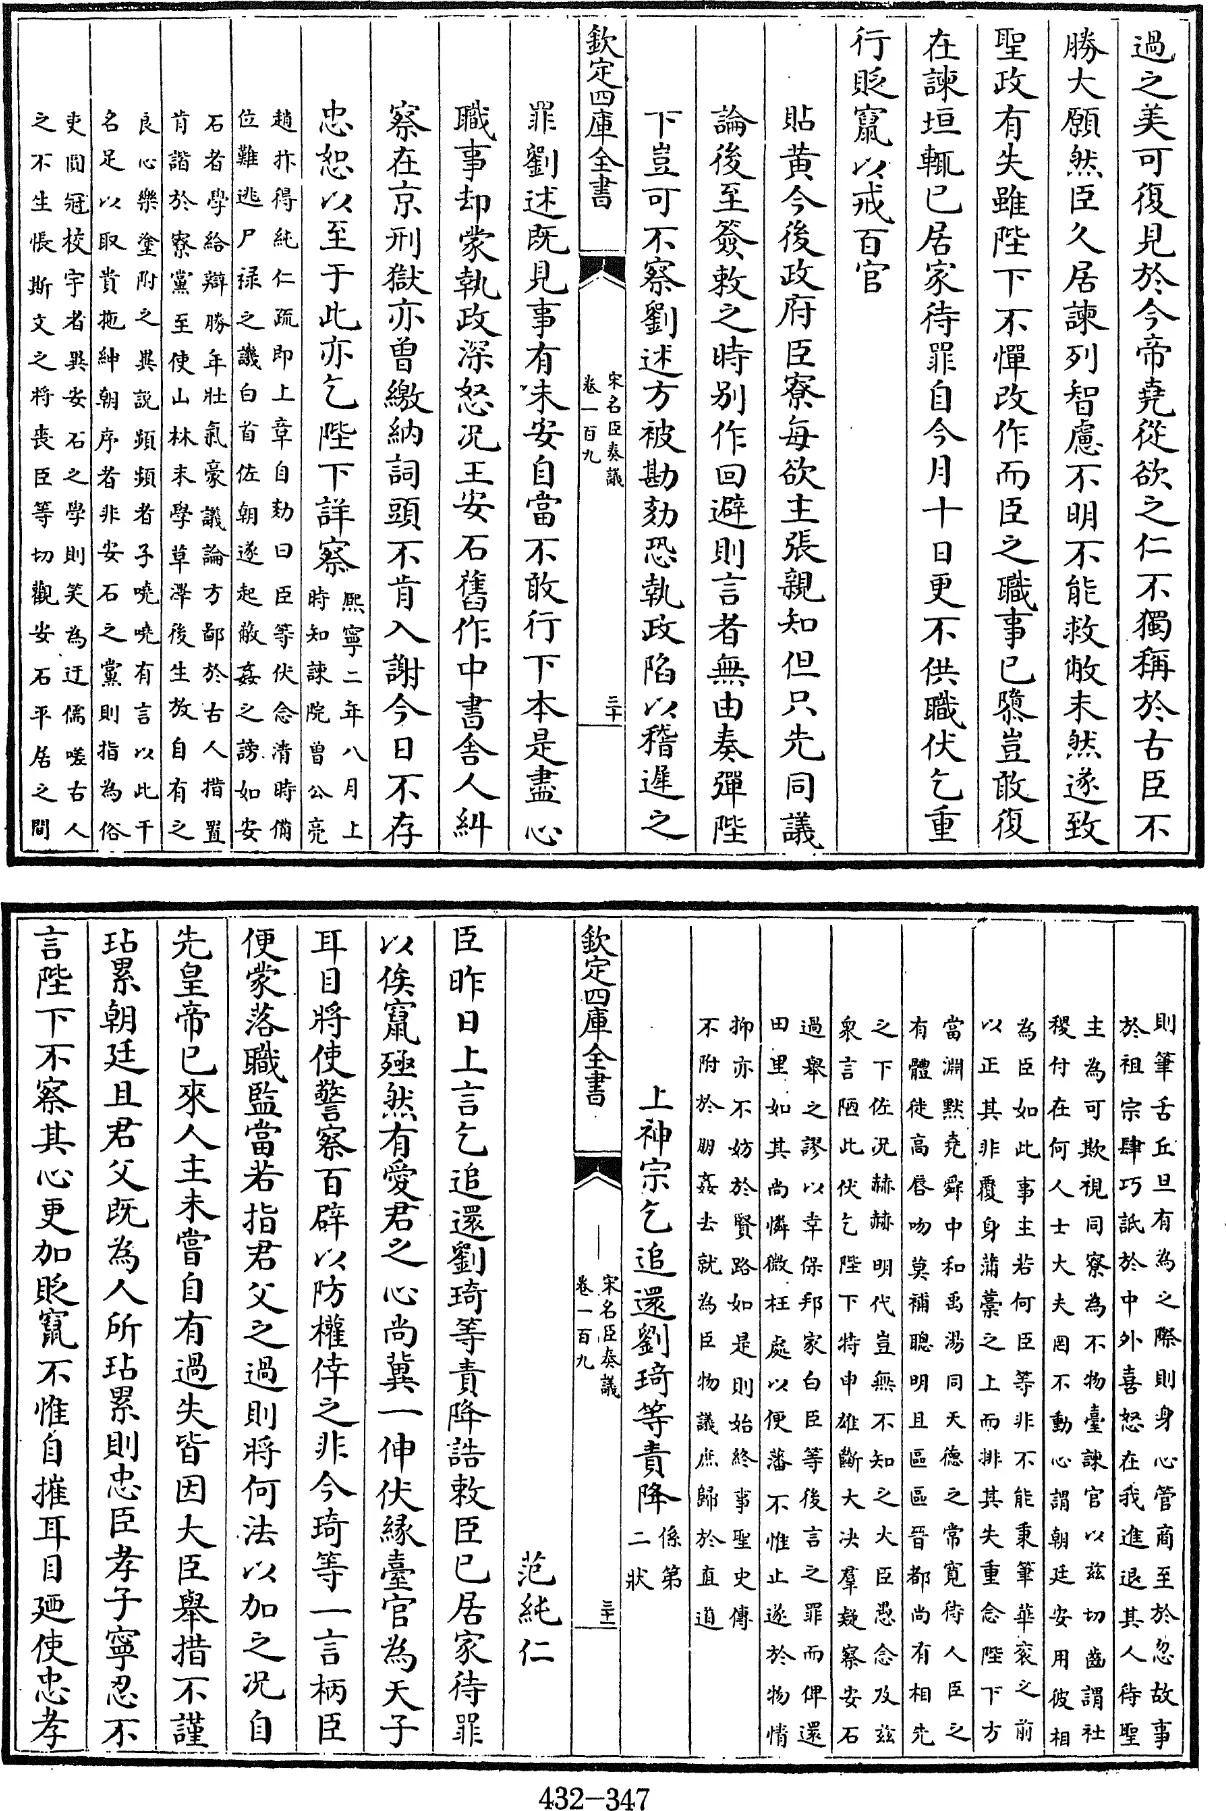 過之美可復見於今帝堯從欲之仁不獨稱於古臣不
勝大願然臣久居諫列智慮不明不能救敝未然遂致
聖政有失雖陛下不憚改作而臣之職事已隳豈敢復
在諫垣輒已居家待罪自今月十日更不供職伏乞重
行貶竄以戒百官
貼黄今後政府臣寮每欲主張親知但只先同議
論後至簽敕之時别作回避則言者無由奏彈陛
下豈可不察劉述方被勘劾恐執政陷以稽遲之
欽定四庫全書
宋名臣奏議
卷一百九
三十
罪劉述既見事有未安自當不敢行下本是盡心
職事却蒙執政深怒况王安石舊作中書舍人糾
察在京刑獄亦曾繳納詞頭不肯入謝今日不存
忠恕以至于此亦乞陛下詳察
熙寧二年八月上
時知諫院曾公亮
趙抃得純仁疏即上章自劾曰臣等伏念清時備
位難逃尸禄之譏白首佐朝遂起蔽姦之謗如安
石者學給辯勝年壯氣豪議論方鄙於古人措置
肯諧於寮黨至使山林末學草澤後生放自有之
良心樂塗附之異説頻頻者子嘵嘵有言以此干
名足以取貴拖紳朝序者非安石之黨則指為俗
吏圜冠校宇者異安石之學則笑為迂儒嗟古人
之不生悵斯文之將喪臣等切觀安石平居之間
則筆舌丘旦有為之際則身心管商至於忽故事
於祖宗肆巧詆於中外喜怒在我進退其人待聖
主為可欺視同寮為不物臺諫官以兹切齒謂社
稷付在何人士大夫罔不動心謂朝廷安用彼相
為臣如此事主若何臣等非不能秉筆華衮之前
以正其非覆身蒲藁之上而排其失重念陛下方
當淵默堯舜中和禹湯同天德之常寛待人臣之
有體徒高唇吻莫補聰明且區區晉都尚有相先
之下佐况赫赫明代豈無不知之大臣愚念及兹
衆言陋此伏乞陛下特申雄斷大决羣疑察安石
過舉之謬以幸保邦家白臣等後言之罪而俾還
田里如其尚憐微枉處以便藩不惟止遂於物情
抑亦不妨於賢路如是則始終事聖史傳
不附於朋姦去就為臣物議庶歸於直道
上神宗乞追還劉琦等責降
係第
二狀
欽定四庫全書
宋名臣奏議
卷一百九
三十一
范純仁
臣昨日上言乞追還劉琦等責降誥敕臣已居家待罪
以俟竄殛然有愛君之心尚冀一伸伏緣臺官為天子
耳目將使警察百辟以防權倖之非今琦等一言柄臣
便蒙落職監當若指君父之過則將何法以加之况自
先皇帝已來人主未嘗自有過失皆因大臣舉措不謹
玷累朝廷且君父既為人所玷累則忠臣孝子寧忍不
言陛下不察其心更加貶竄不惟自摧耳目廼使忠孝
432-347